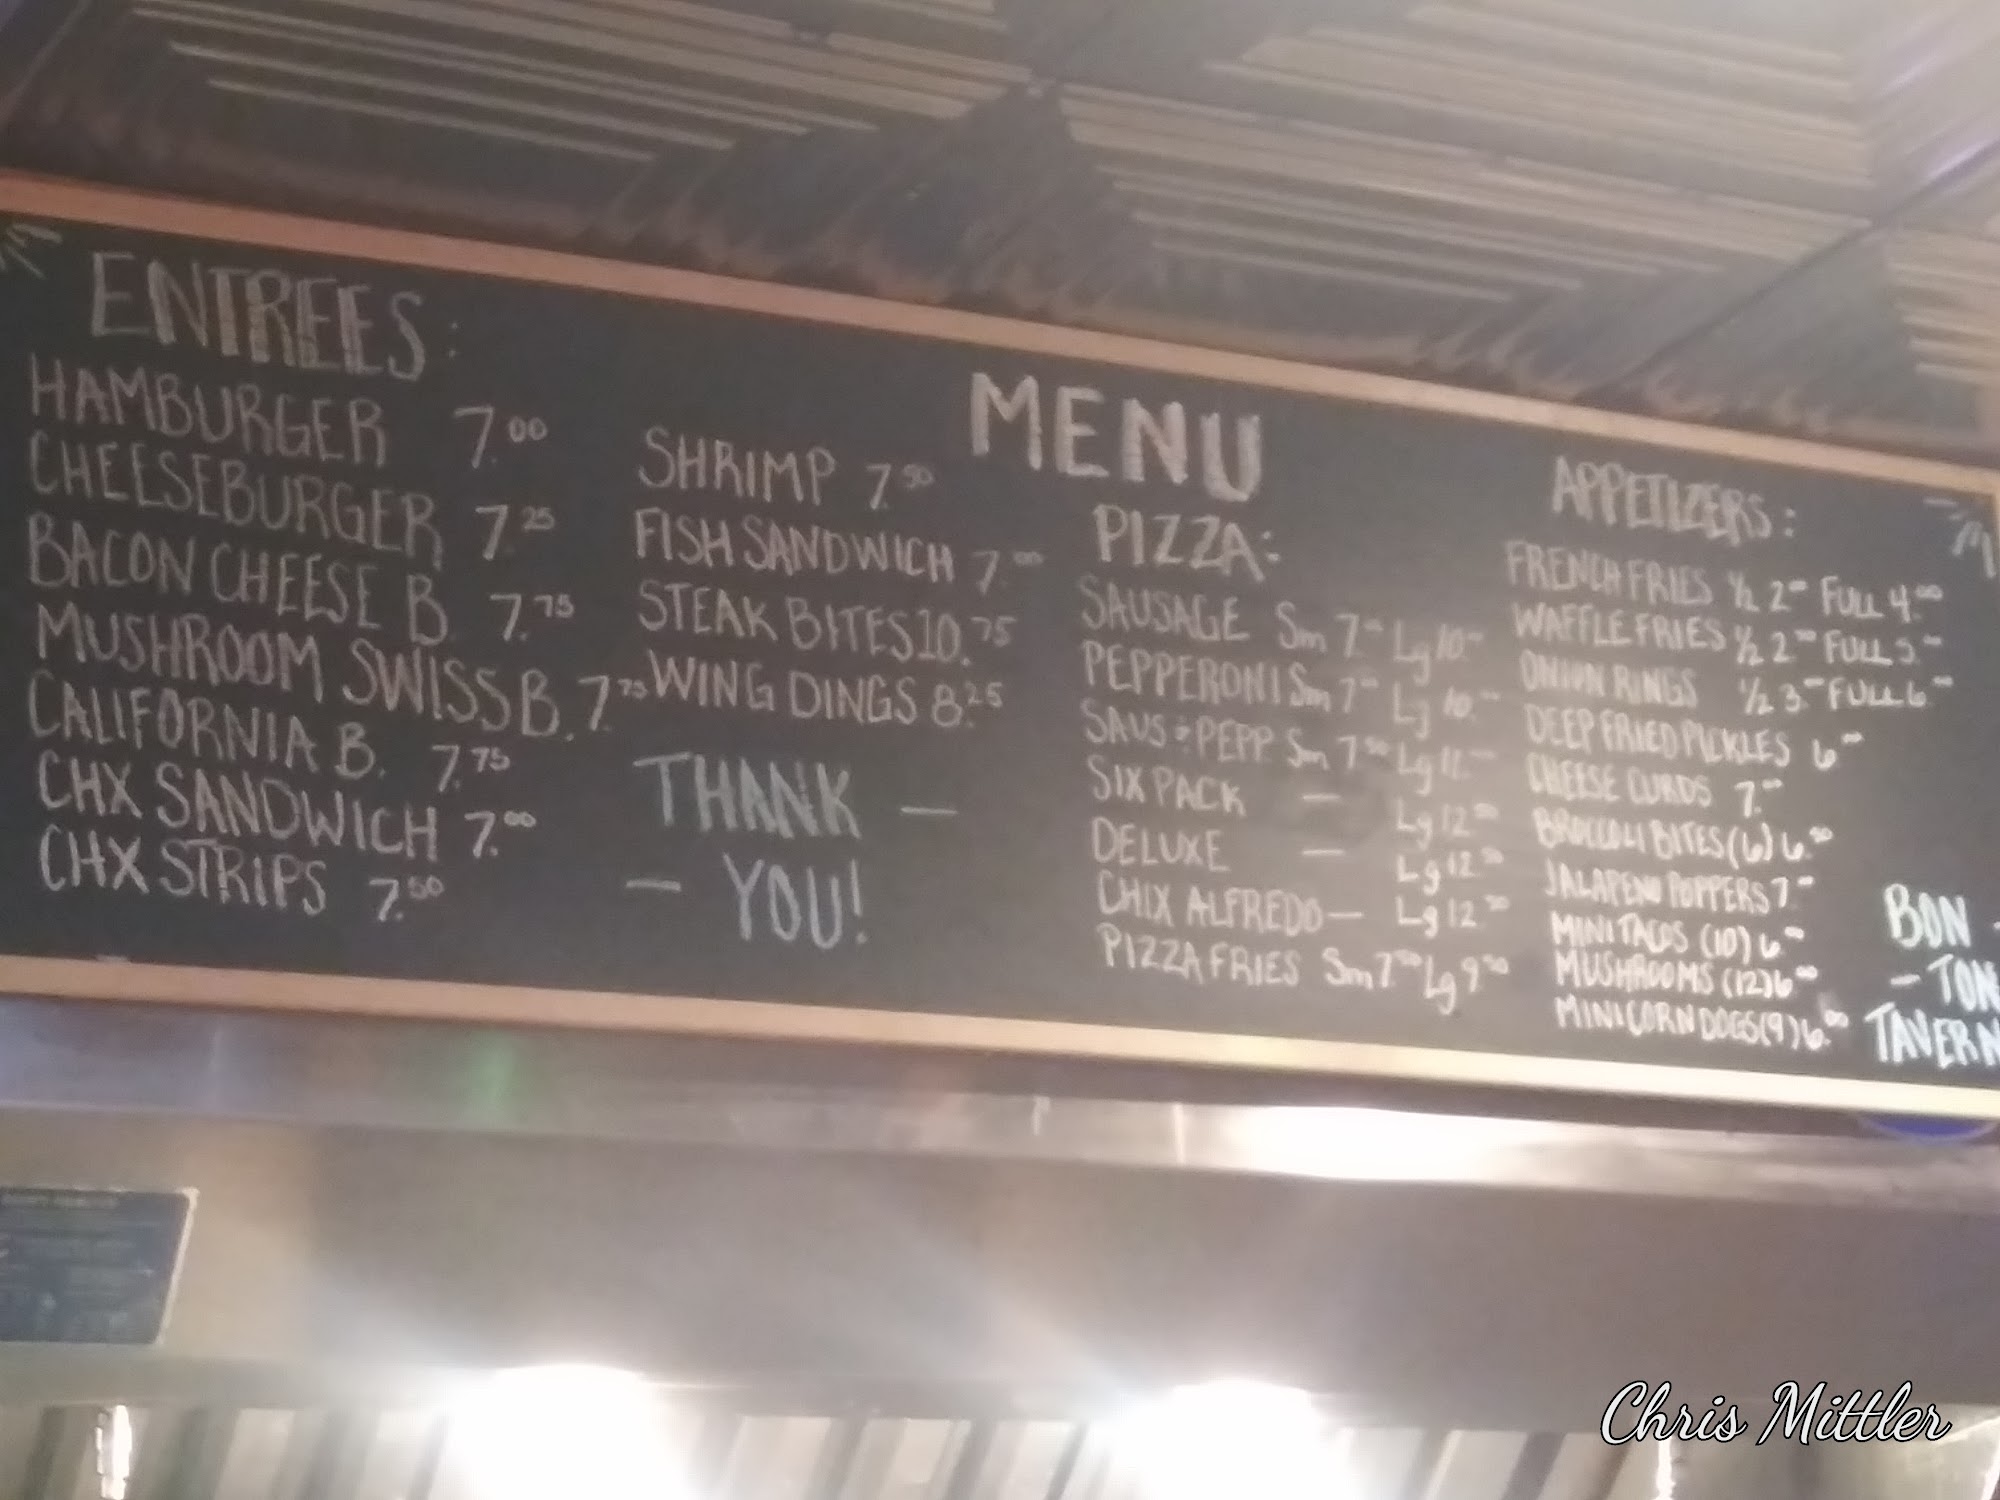 ENTREES:
HAMBURGER 7.00
CHEESEBURGER 7.25
BACON CHEESE B. 7.75
MUSHROOM SWISS B. 7.75
CALIFORNIA B. 7.75
CHX SANDWICH 7.00
CHX STRIPS 7.50
SHRIMP 7.50
FISH SANDWICH 7.00
STEAK BITES 10.75
WING DINGS 8.25
THANK —
— YOU!
MENU
PIZZA:
SAUSAGE Sm 7. Lg 10.
PEPPERONI Sm 7. Lg 10.
SAUS + PEPP Sm 7.50 Lg 11.
SIX PACK — Lg 12.50
DELUXE — Lg 12.50
CHIX ALFREDO — Lg 12.50
PIZZA FRIES Sm 7.50 Lg 9.50
APPETIZERS:
FRENCH FRIES ½ 2 FULL 4.00
WAFFLE FRIES ½ 2 FULL 5.
ONION RINGS ½ 3. FULL 6.
DEEP FRIED PICKLES 6
CHEESE CURDS 7.
BROCCOLI BITES (6) 6.50
JALAPENO POPPERS 7
MINI TACOS (10) 6
MUSHROOMS (12) 6.00
MINI CORN DOGS (9) 6.00
BON -
- TON
TAVERN
Chris Mittler